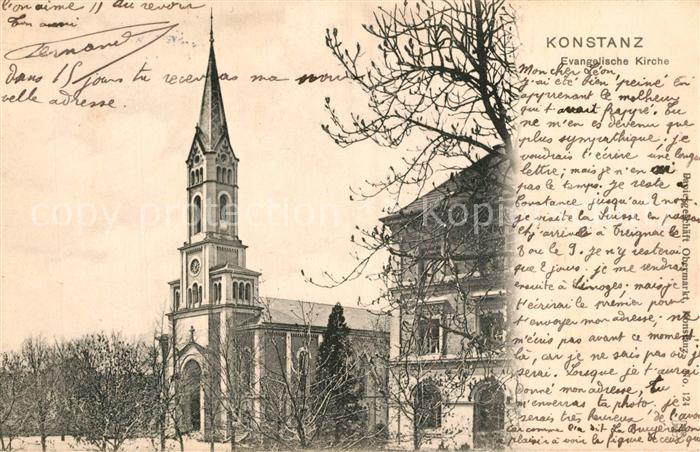 KONSTANZ
Evangelische Kirche
Mon cher Léon
j'ai été bien peiné en
apprenant le malheur
qui t'avait frappé. Tu
ne m'en es devenu que
plus sympathique. je
voudrais t'écrire une longue
lettre; mais je n'en ai
pas le temps. Je reste à
Constance jusqu'au 2
je visite la Suisse en passant
et j'arrive à Treignac le
8 ou le 9. je n'y resterai
que 2 jours. je me rendrai
ensuite à Limoges. mais je
t'écrirai le premier pour
t'envoyer mon adresse; ne
m'écris pas avant ce moment
là, car je ne sais pas où je
serai. Lorsque je t'aurai
donné mon adresse, tu
m'enverras ta photo. je
serais très heureux de l'avoir
car comme l'a dit La Bruyère on a
plaisir à voir la figure de ceux que
l'on aime !! au revoir
Ton ami
Fernand
dans 15 jours tu recevras ma nouvelle adresse.
copyright
Obermarkt, Konstanz
No. 121